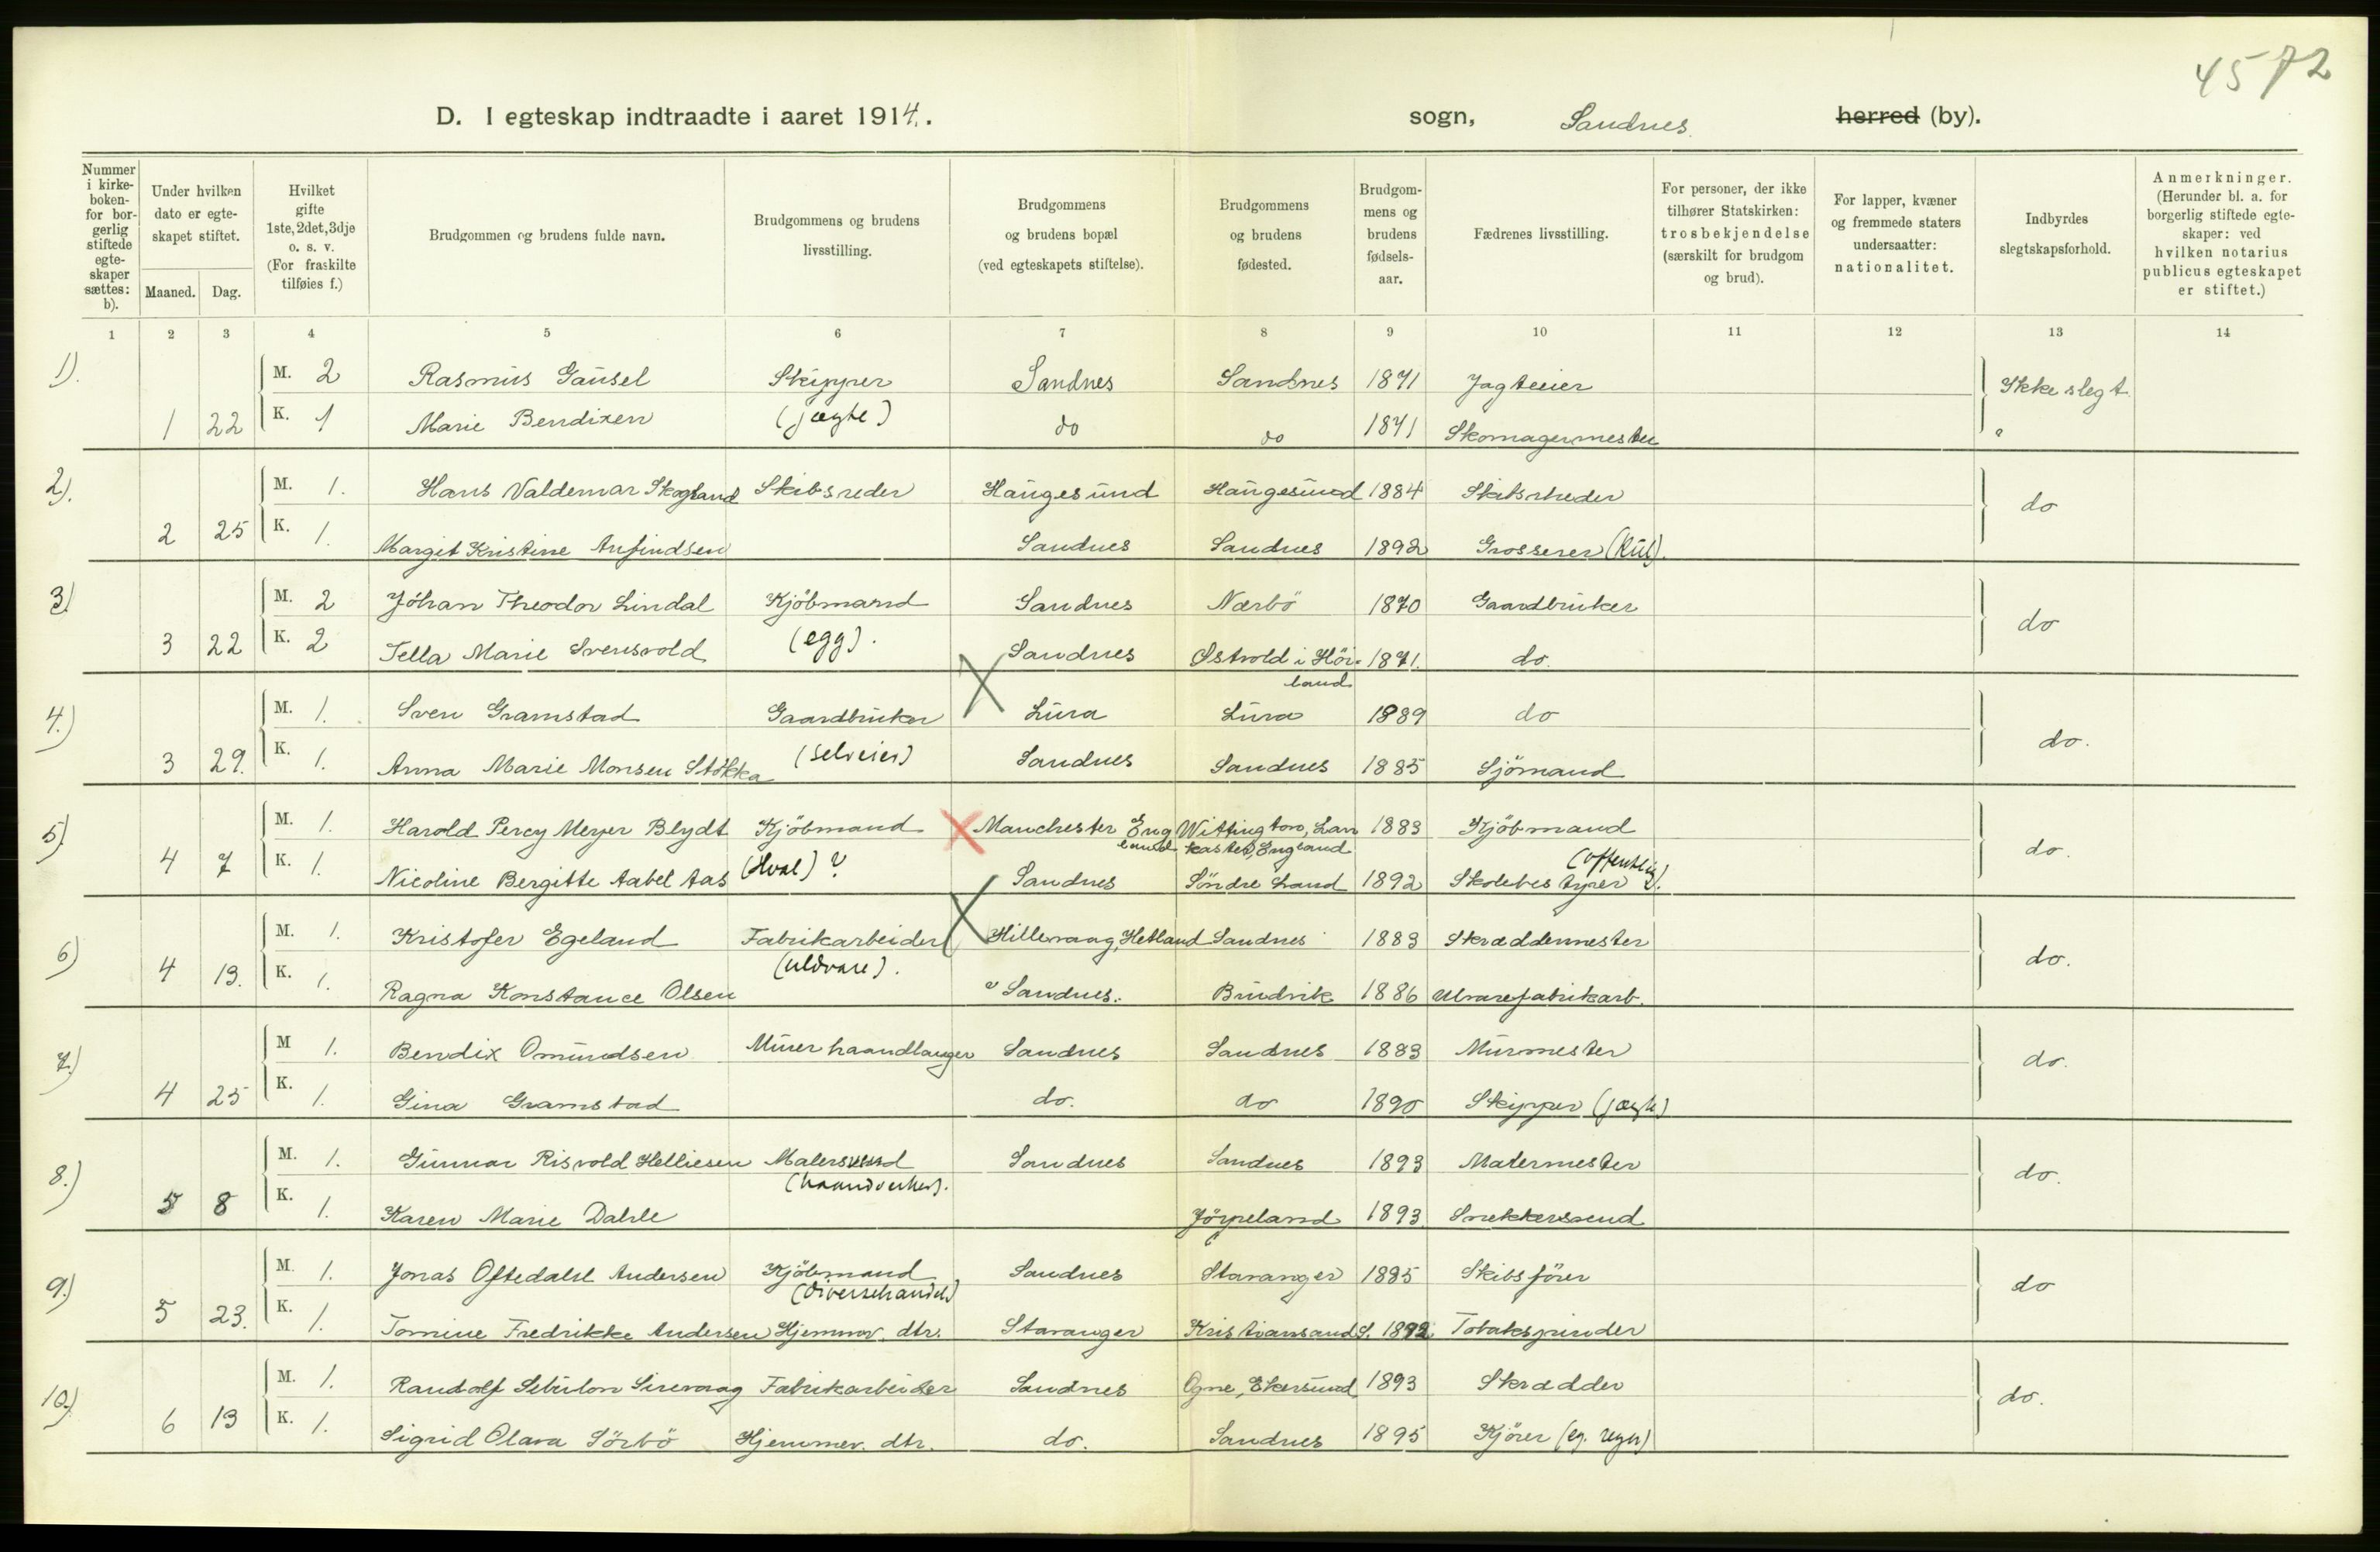 4572
D. I egteskap indtraadte i aaret 1914. sogn, Sandnes herred (by).
Nummer i kirke-boken- for bor-gerlig stiftede egte-skaper sættes: b).
Under hvilken dato er egte-skapet stiftet.
Maaned. Dag.
Hvilket gifte 1ste, 2det, 3dje o. s. v. (For fraskilte tilføies f.)
Brudgommen og brudens fulde navn.
Brudgommens og brudens livsstilling.
Brudgommens og brudens bopæl (ved egteskapets stiftelse).
Brudgommens og brudens fødested.
Brudgom-mens og brudens fødsels-aar.
Fædrenes livsstilling.
For personer, der ikke tilhører Statskirken: trosbekjendelse (særskilt for brudgom og brud).
For lapper, kvæner og fremmede staters undersaatter: nationalitet.
Indbyrdes slegtskapsforhold.
Anmerkninger. (Herunder bl. a. for borgerlig stiftede egte-skaper: ved hvilken notarius publicus egteskapet er stiftet.)
1 2 3 4 5 6 7 8 9 10 11 12 13 14
1). M. 2 Rasmus Gausel Skipper Sandnes Sandnes 1871 Jagteier Ikke slegt.
1 22 K. 1 Marie Bendixen (jægte) do do 1871 Skomagermester
2). M. 1. Hans Valdemar Skogland Skibsreder Haugesund Haugesund 1884 Skibsrheder do
2 25 K. 1. Margit Kristine Anfindsen Sandnes Sandnes 1892 Grosserer (Kul).
3) M. 2 Johan Theodor Lindal Kjöbmand Sandnes Nærbö 1870 Gaardbruker do
3 22 K. 2 Tella Marie Svensvold (egg). Sandnes Østvold i Höi-land 1871. do.
4.) M. 1. Sven Gramstad Gaardbruker Lura Lura 1889 do do.
3 29. K. 1. Anna Marie Monsen Stokka (selveier) Sandnes Sandnes 1885 Sjömand
5) M. 1. Harold Percy Meyer Blydt Kjöbmand Manchester England Wittington, Lankaster, England 1883 Kjöbmand do.
4 7 K. 1. Nicoline Bergitte Aabel Aas (Hval)? Sandnes Söndre Land 1892 Skolebestyrer (offentlig).
6) M. 1. Kristofer Egeland Fabrikarbeider Hillevaag, Hetland Sandnes 1883 Skræddermester do.
4 13. K. 1. Ragna Konstance Olsen (uldvare). Sandnes. Brudvik 1886 Ulvarefabrikarb.
7.) M 1. Bendix Omundsen Murerhaandlanger Sandnes Sandnes 1883 Murmester do.
4 25 K. 1. Gina Gramstad do. do 1890 Skipper (jægt)
8.) M. 1. Gunnar Risvold Helliesen Malersvend Sandnes Sandnes 1893 Malermester do.
5 8 K. 1. Karen Marie Dahle (haandverker). Jörpeland 1893. Snekkersvend
9.) M. 1. Jonas Oftedahl Andersen Kjöbmand Sandnes Stavanger 1885 Skibsförer do
5 23. K. 1. Tomine Fredrikke Andersen (diversehandel) Hjemmev. dtr. Stavanger Kristiansand S. 1892 Tobakspinder
10.) M. 1. Randolf Sebulon Sirevaag Fabrikarbeider Sandnes Ogne, Ekersund 1893 Skrædder do.
6 13 K. 1. Sigrid Olava Sörbö Hjemmev. dtr. do. Sandnes 1895 Kjörer (eg. regn)